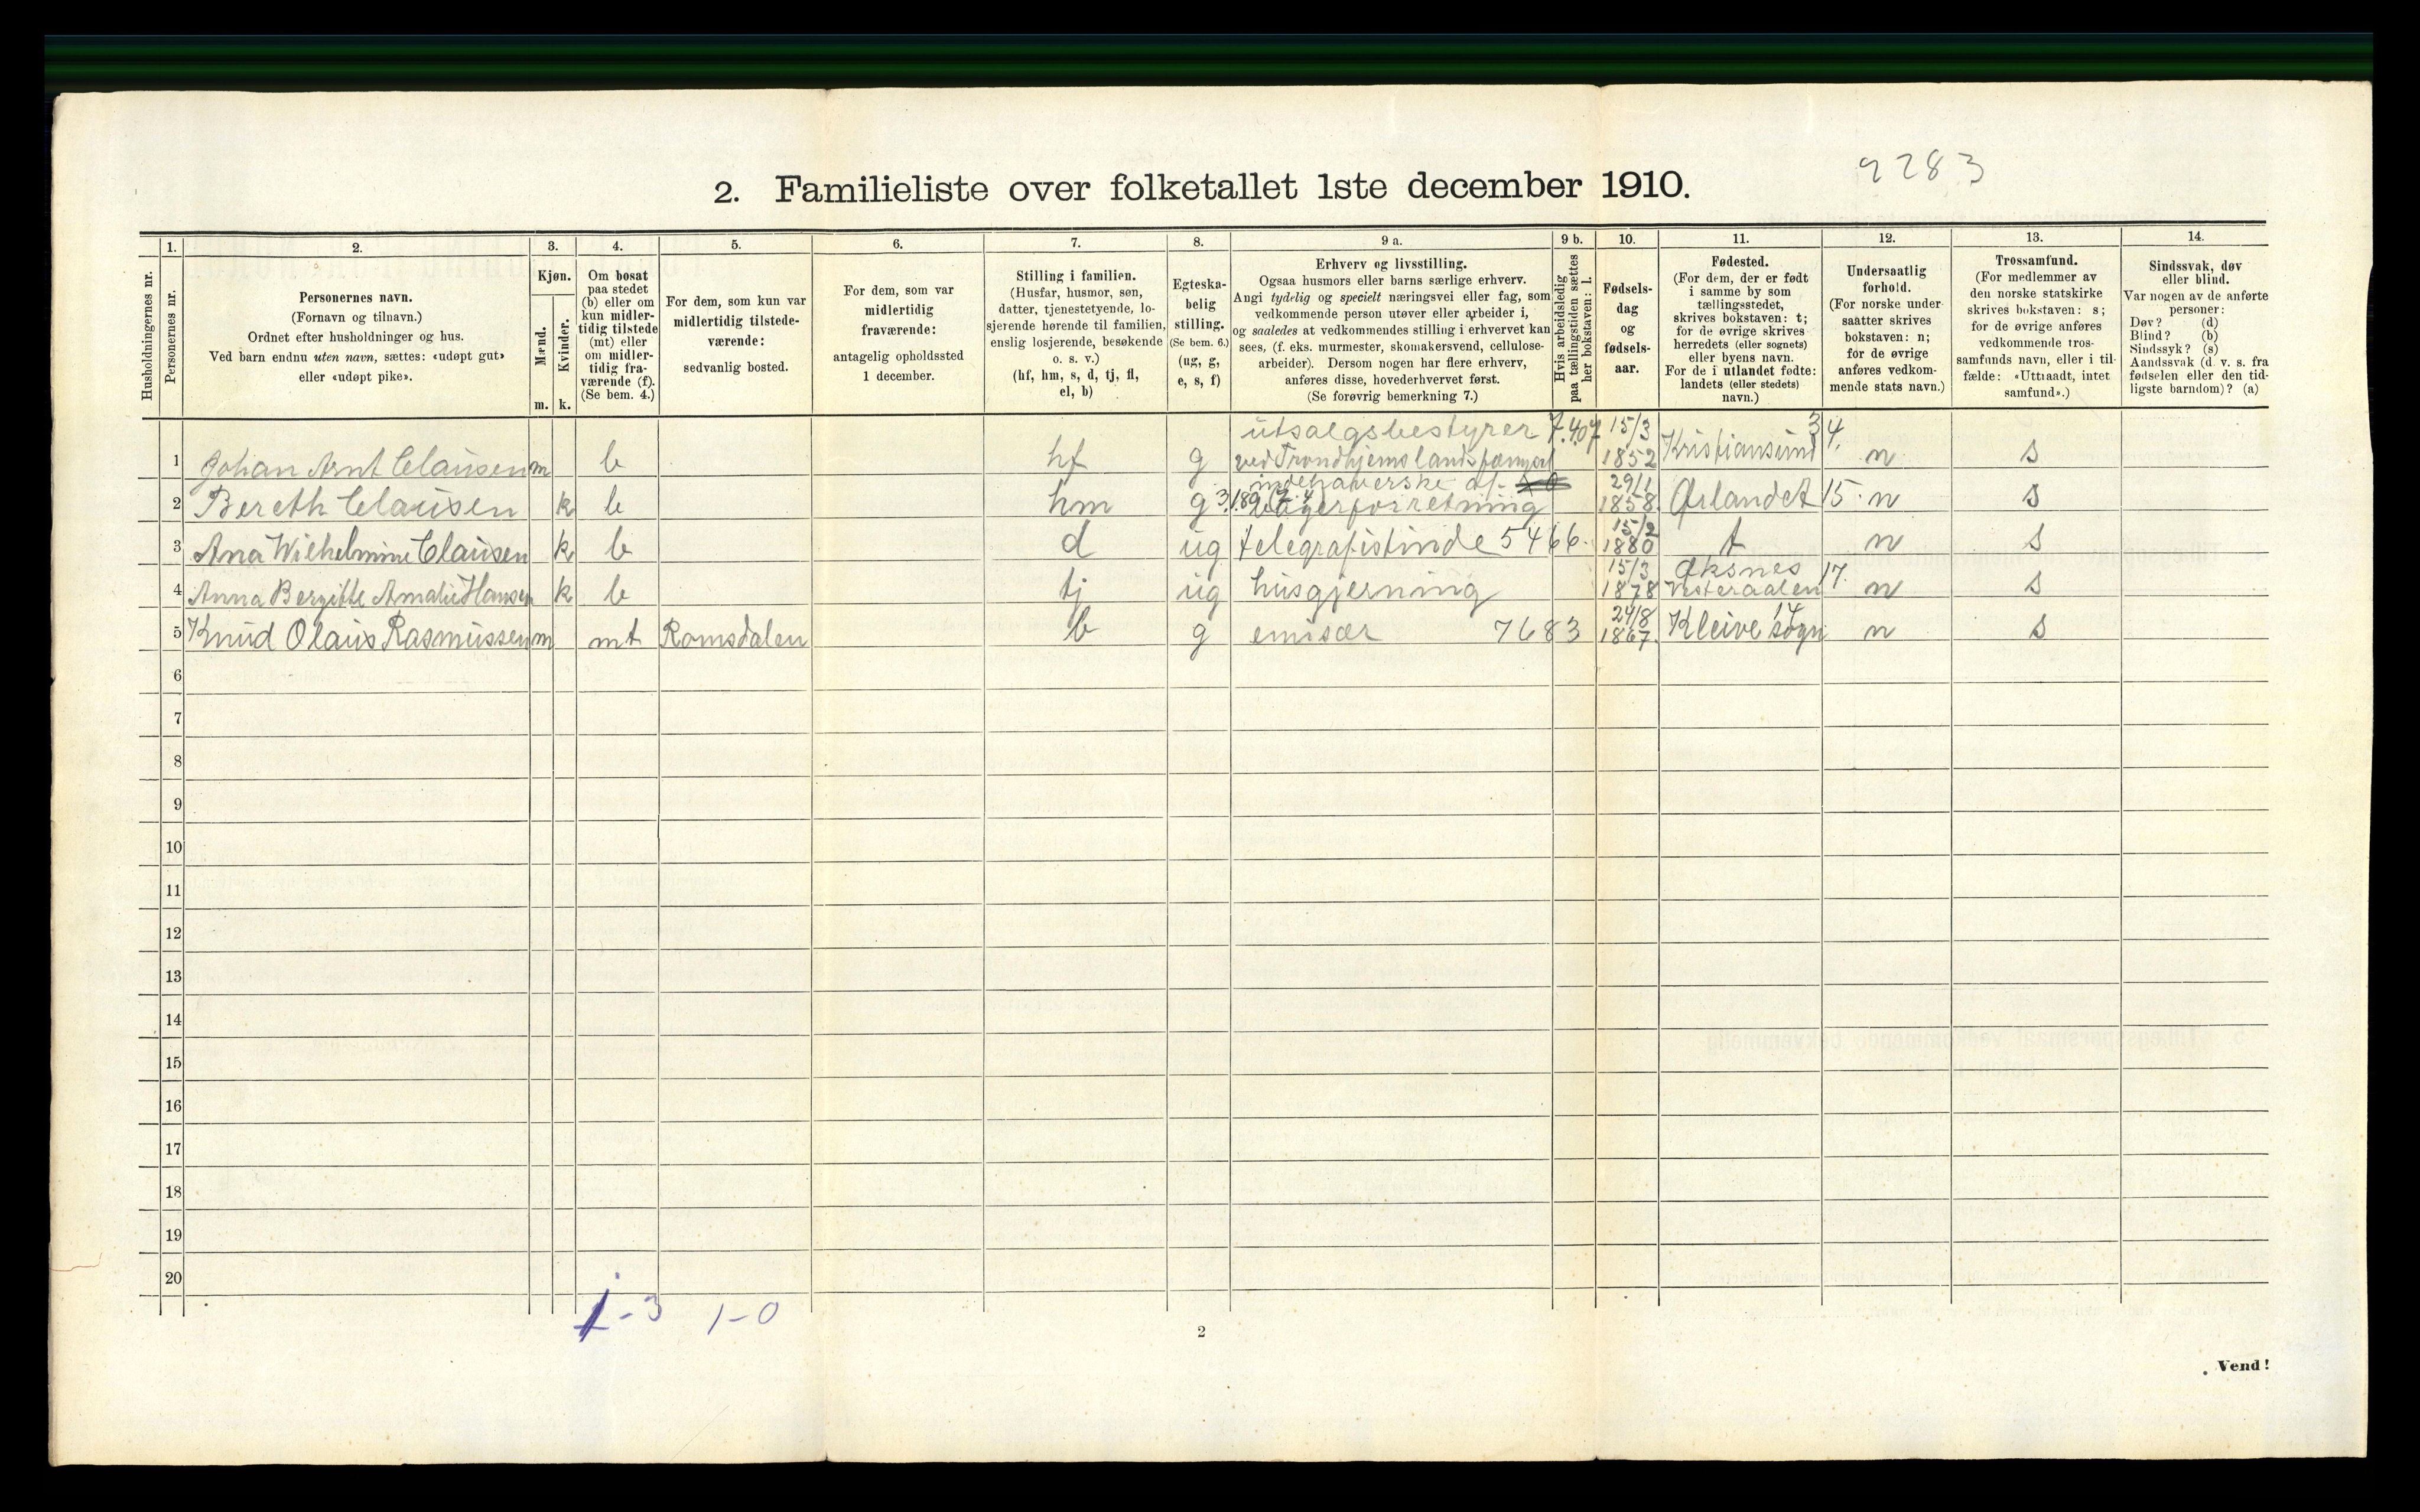 2283
2. Familieliste over folketallet 1ste december 1910.
Husholdningernes nr.
1. Personernes nr.
2. Personernes navn.
(Fornavn og tilnavn.)
Ordnet efter husholdninger og hus.
Ved barn endnu uten navn, sættes: «udøpt gut»
eller «udøpt pike».
3. Kjøn.
Mænd. m.
Kvinder. k.
4. Om bosat
paa stedet
(b) eller om
kun midler-
tidig tilstede
(mt) eller
om midler-
tidig fra-
værende (f).
(Se bem. 4.)
5. For dem, som kun var
midlertidig tilstede-
værende:
sedvanlig bosted.
6. For dem, som var
midlertidig
fraværende:
antagelig opholdssted
1 december.
7. Stilling i familien.
(Husfar, husmor, søn,
datter, tjenestetyende, lo-
sjerende hørende til familien,
enslig losjerende, besøkende
o. s. v.)
(hf, hm, s, d, tj, fl,
el, b)
8. Egteska-
belig
stilling.
(Se bem. 6.)
(ug, g,
e, s, f)
9 a. Erhverv og livsstilling.
Ogsaa husmors eller barns særlige erhverv.
Angi tydelig og specielt næringsvei eller fag, som
vedkommende person utøver eller arbeider i,
og saaledes at vedkommendes stilling i erhvervet kan
sees, (f. eks. murmester, skomakersvend, cellulose-
arbeider). Dersom nogen har flere erhverv,
anføres disse, hovederhvervet først.
(Se forøvrig bemerkning 7.)
9 b. Hvis arbeidsledig
paa tællingstiden sættes
her bokstaven: l.
10. Fødsels-
dag
og
fødsels-
aar.
11. Fødested.
(For dem, der er født
i samme by som
tællingsstedet,
skrives bokstaven: t;
for de øvrige skrives
herredets (eller sognets)
eller byens navn.
For de i utlandet fødte:
landets (eller stedets)
navn.)
12. Undersaatlig
forhold.
(For norske under-
saatter skrives
bokstaven: n;
for de øvrige
anføres vedkom-
mende stats navn.)
13. Trossamfund.
(For medlemmer av
den norske statskirke
skrives bokstaven: s;
for de øvrige anføres
vedkommende tros-
samfunds navn, eller i til-
fælde: «Uttraadt, intet
samfund».)
14. Sindssvak, døv
eller blind.
Var nogen av de anførte
personer:
Døv? (d)
Blind? (b)
Sindssyk? (s)
Aandssvak (d. v. s. fra
fødselen eller den tid-
ligste barndom)? (a)
1 Johan Arnt Clausen m b hf g utsalgsbestyrer 7.407
ved Trondhjems landsfængsel 15/3 1852 Kristiansund 34. n s
2 Bereth Clausen k b hm g indehaverske af
bagerforretning 29/1 1858. Ørlandet 15. n s
3 Ana Wilhelmine Clausen k b d ug telegrafistinde 5466. 15/2 1880 t n s
4 Anna Bergitte Amalie Hansen k b tj ug husgjerning 15/3 1878 Øksnes
Vesteraalen 17. n s
5 Knud Olaus Rasmussen m mt Romsdalen b g emisær 7683 24/8 1867. Kleive sogn n s
6
7
8
9
10
11
12
13
14
15
16
17
18
19
20
1-3 1-0
2
Vend!